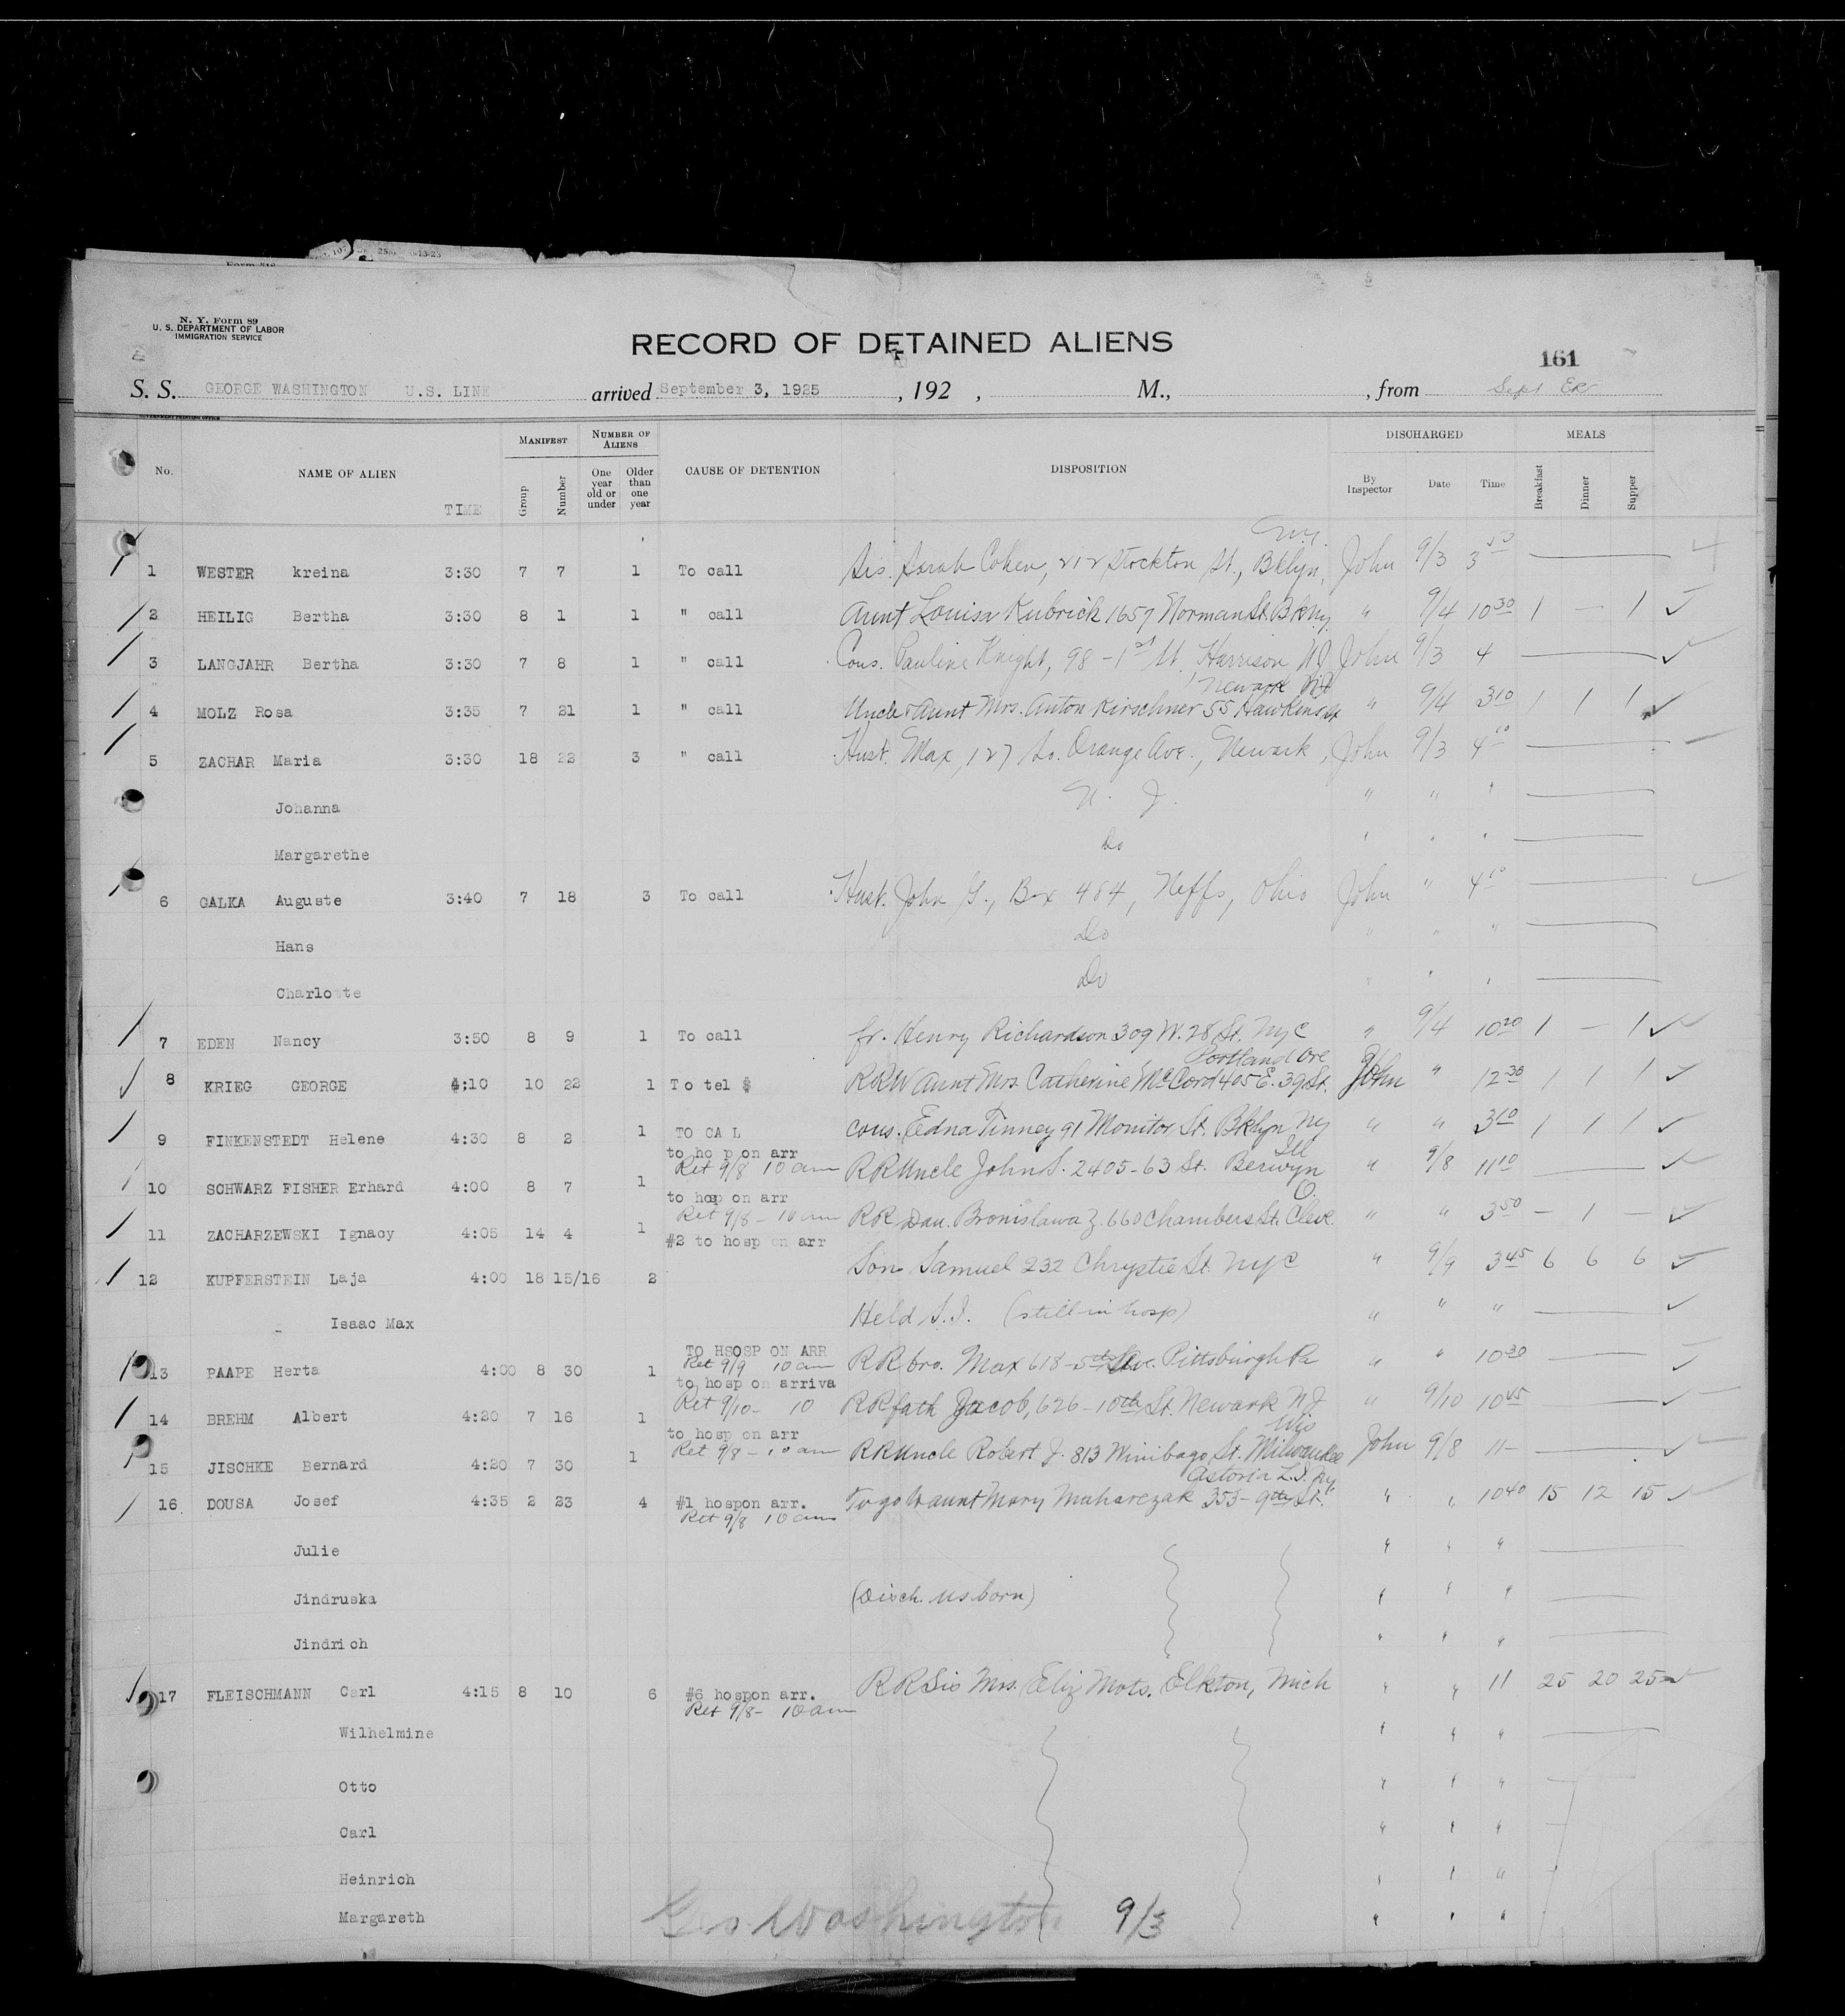 N. Y. Form 89
U. S. DEPARTMENT OF LABOR
IMMIGRATION SERVICE
RECORD OF DETAINED ALIENS
161
S. S. GEORGE WASHINGTON U.S. LINE arrived September 3, 1925, 192 , M., , from Sept
GOVERNMENT PRINTING OFFICE
No. NAME OF ALIEN TIME MANIFEST Group Number NUMBER OF ALIENS One year old or under Older than one year CAUSE OF DETENTION DISPOSITION DISCHARGED By Inspector Date Time MEALS Breakfast Dinner Supper
N.Y.
1 WESTER kreina 3:30 7 7 1 To call Sis. Sarah Cohen, 212 Stockton St., Bklyn, John 9/3 3 50
2 HEILIG Bertha 3:30 8 1 1 " call Aunt Louisa Kubrick 1657 Norman St. Bk NY " 9/4 10 30 1 — 1
3 LANGJAHR Bertha 3:30 7 8 1 " call Cous. Pauline Knight, 98 - 1st St. Harrison, NJ John 9/3 4
Newark NJ
4 MOLZ Rosa 3:35 7 21 1 " call Uncle & Aunt Mrs. Anton Kirschner 55 Hawkins St " 9/4 3 10 1 1 1
5 ZACHAR Maria 3:30 18 22 3 " call Husb. Max, 127 So. Orange Ave., Newark, John 9/3 4 10
Johanna N. J. " " "
Margarethe Do " " "
6 GALKA Auguste 3:40 7 18 3 To call Husb. John G., Box 484, Neffs, Ohio John " 4 10
Hans Do " " "
Charlotte Do " " "
7 EDEN Nancy 3:50 8 9 1 To call fr. Henry Richardson 309 W. 28 St. NYC " 9/4 10 20 1 — 1
Portland Ore
8 KRIEG GEORGE 4:10 10 22 1 To tel $ RRW Aunt Mrs. Catherine McCord 405 E. 39 St. John " 12 30 1 1 1
9 FINKENSTEDT Helene 4:30 8 2 1 TO CA L cous. Edna Tinney 91 Monitor St. Bklyn NY " " 3 10 1 1 1
to ho p on arr Ill
Ret 9/8 10 am
10 SCHWARZ FISHER Erhard 4:00 8 7 1 RR Uncle John S. 2405-63 St. Berwyn " 9/8 11 10
to hosp on arr O.
Ret 9/8 - 10 am
11 ZACHARZEWSKI Ignacy 4:05 14 4 1 RR Dau. Bronislawa Z. 660 Chambers St. Cleve. " " 3 50 — 1 —
#2 to hosp on arr
12 KUPFERSTEIN Laja 4:00 18 15/16 2 Son Samuel 232 Chrystie St. NYC " 9/9 3 45 6 6 6
Isaac Max Held S.I. (still in hosp) " " "
TO HSOSP ON ARR
Ret 9/9 10 am
13 PAAPE Herta 4:00 8 30 1 RR bro. Max 618-5th Ave. Pittsburgh Pa " " 10 30
to hosp on arriva
Ret 9/10 - 10
14 BREHM Albert 4:20 7 16 1 RR fath Jacob, 626-10th St. Newark NJ " 9/10 10 45
to hosp on arr Wis
Ret 9/8 - 10 am
15 JISCHKE Bernard 4:20 7 30 1 RR Uncle Robert J. 813 Winibago St. Milwaukee John 9/8 11-
Astoria L.I. NY
16 DOUSA Josef 4:35 2 23 4 #1 hospon arr. To go to aunt Mary Muharczak 353-9th St. " " 10 40 15 12 15
Ret 9/8 10 am
Julie " " "
Jindruska (Disch. US born) " " "
Jindrich " " "
17 FLEISCHMANN Carl 4:15 8 10 6 #6 hospon arr. RR Sis Mrs. Eliz Mots. Elkton, Mich " " 11 25 20 25
Ret 9/8 - 10 am
Wilhelmine " " "
Otto " " "
Carl " " "
Heinrich " " "
Margareth " " "
Geo Washington 9/3